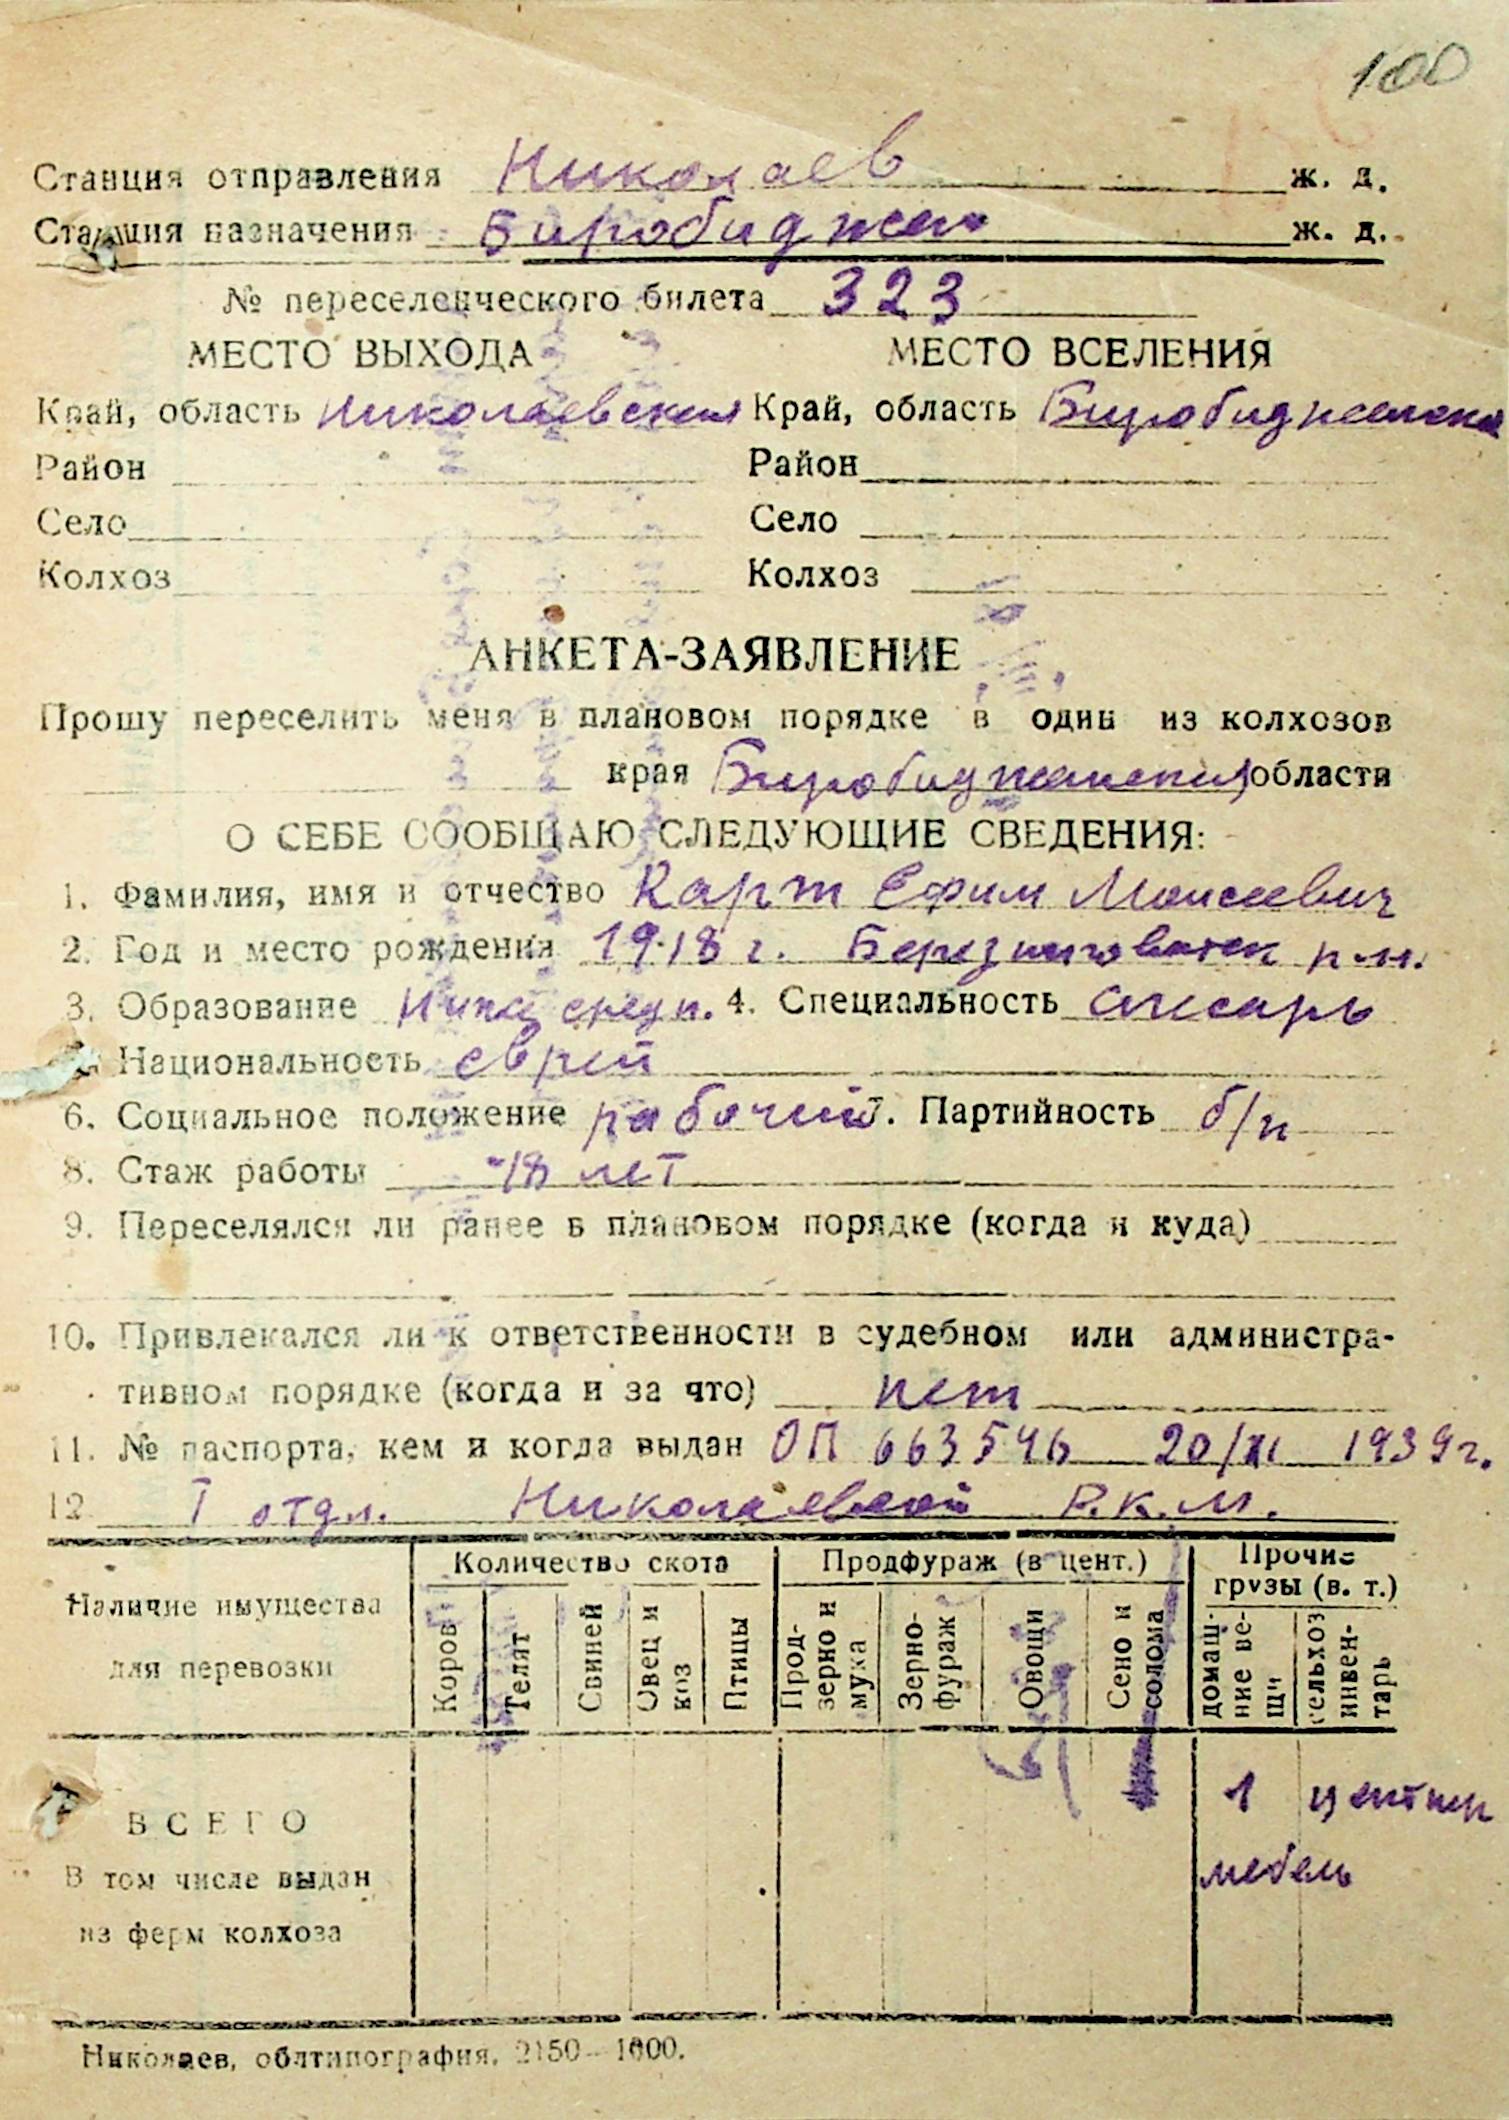 100
Станция отправления Николаев ж. д.
Станция назначения Биробиджан ж. д.
№ переселенческого билета 323
МЕСТО ВЫХОДА МЕСТО ВСЕЛЕНИЯ
Край, область Николаевская Край, область Биробиджанская
Район Район
Село Село
Колхоз Колхоз
АНКЕТА-ЗАЯВЛЕНИЕ
Прошу переселить меня в плановом порядке в один из колхозов
края Биробиджанской области
О СЕБЕ СООБЩАЮ СЛЕДУЮЩИЕ СВЕДЕНИЯ:
1. Фамилия, имя и отчество Карт Ефим Моисеевич
2. Год и место рождения 1918 г. р-н.
3. Образование средн. 4. Специальность слесарь
Национальность еврей
6. Социальное положение рабочий 7. Партийность б/п
8. Стаж работы 18 лет
9. Переселялся ли ранее в плановом порядке (когда и куда)
10. Привлекался ли к ответственности в судебном или администра-
тивном порядке (когда и за что) нет
11. № паспорта, кем и когда выдан ОП 663546 20/XI 1939 г.
12 I отдл. Николаевской Р.К.М.
Наличие имущества для перевозки
Количество скота Продфураж (в цент.) Прочие грузы (в. т.)
Коров Телят Свиней Овец и коз Птицы Прод-зерно и мука Зерно-фураж Овощи Сено и солома домаш-ние ве-щи сельхоз инвен-тарь
ВСЕГО 1 центнер
В том числе выдан мебель
из ферм колхоза
Николаев, облтипография. 2150—1000.